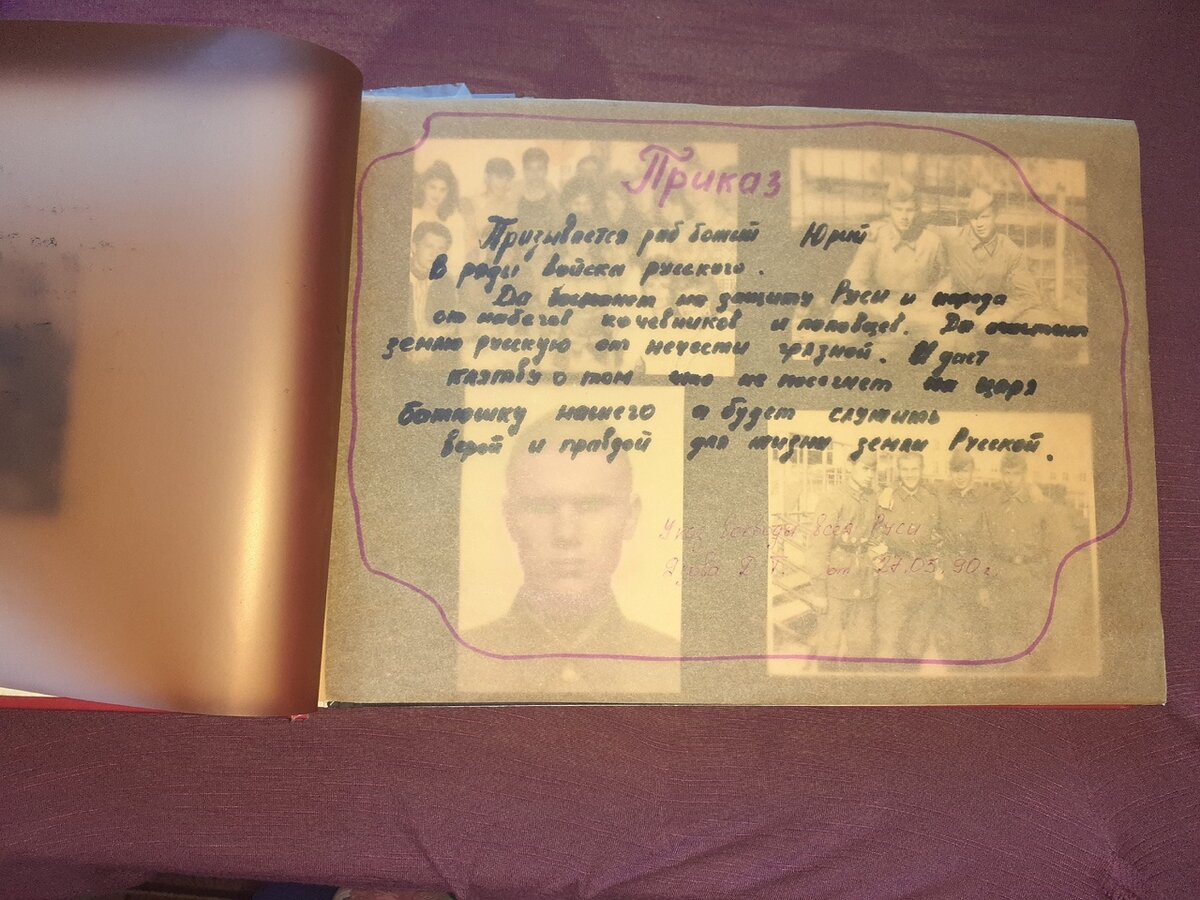 Приказ
Призывается раб божий Юрий
В ряды войска русского.
Да востанет на защиту Руси и народа
от набегов кочевников и половцев. Да очистит
землю русскую от нечести грязной. И даст
клятву о том что не посягнет на царя
батюшку нашего а будет служить
верой и правдой для жизни земли Русской.
Указ воеводы всея Руси
от 27.03.90 г.